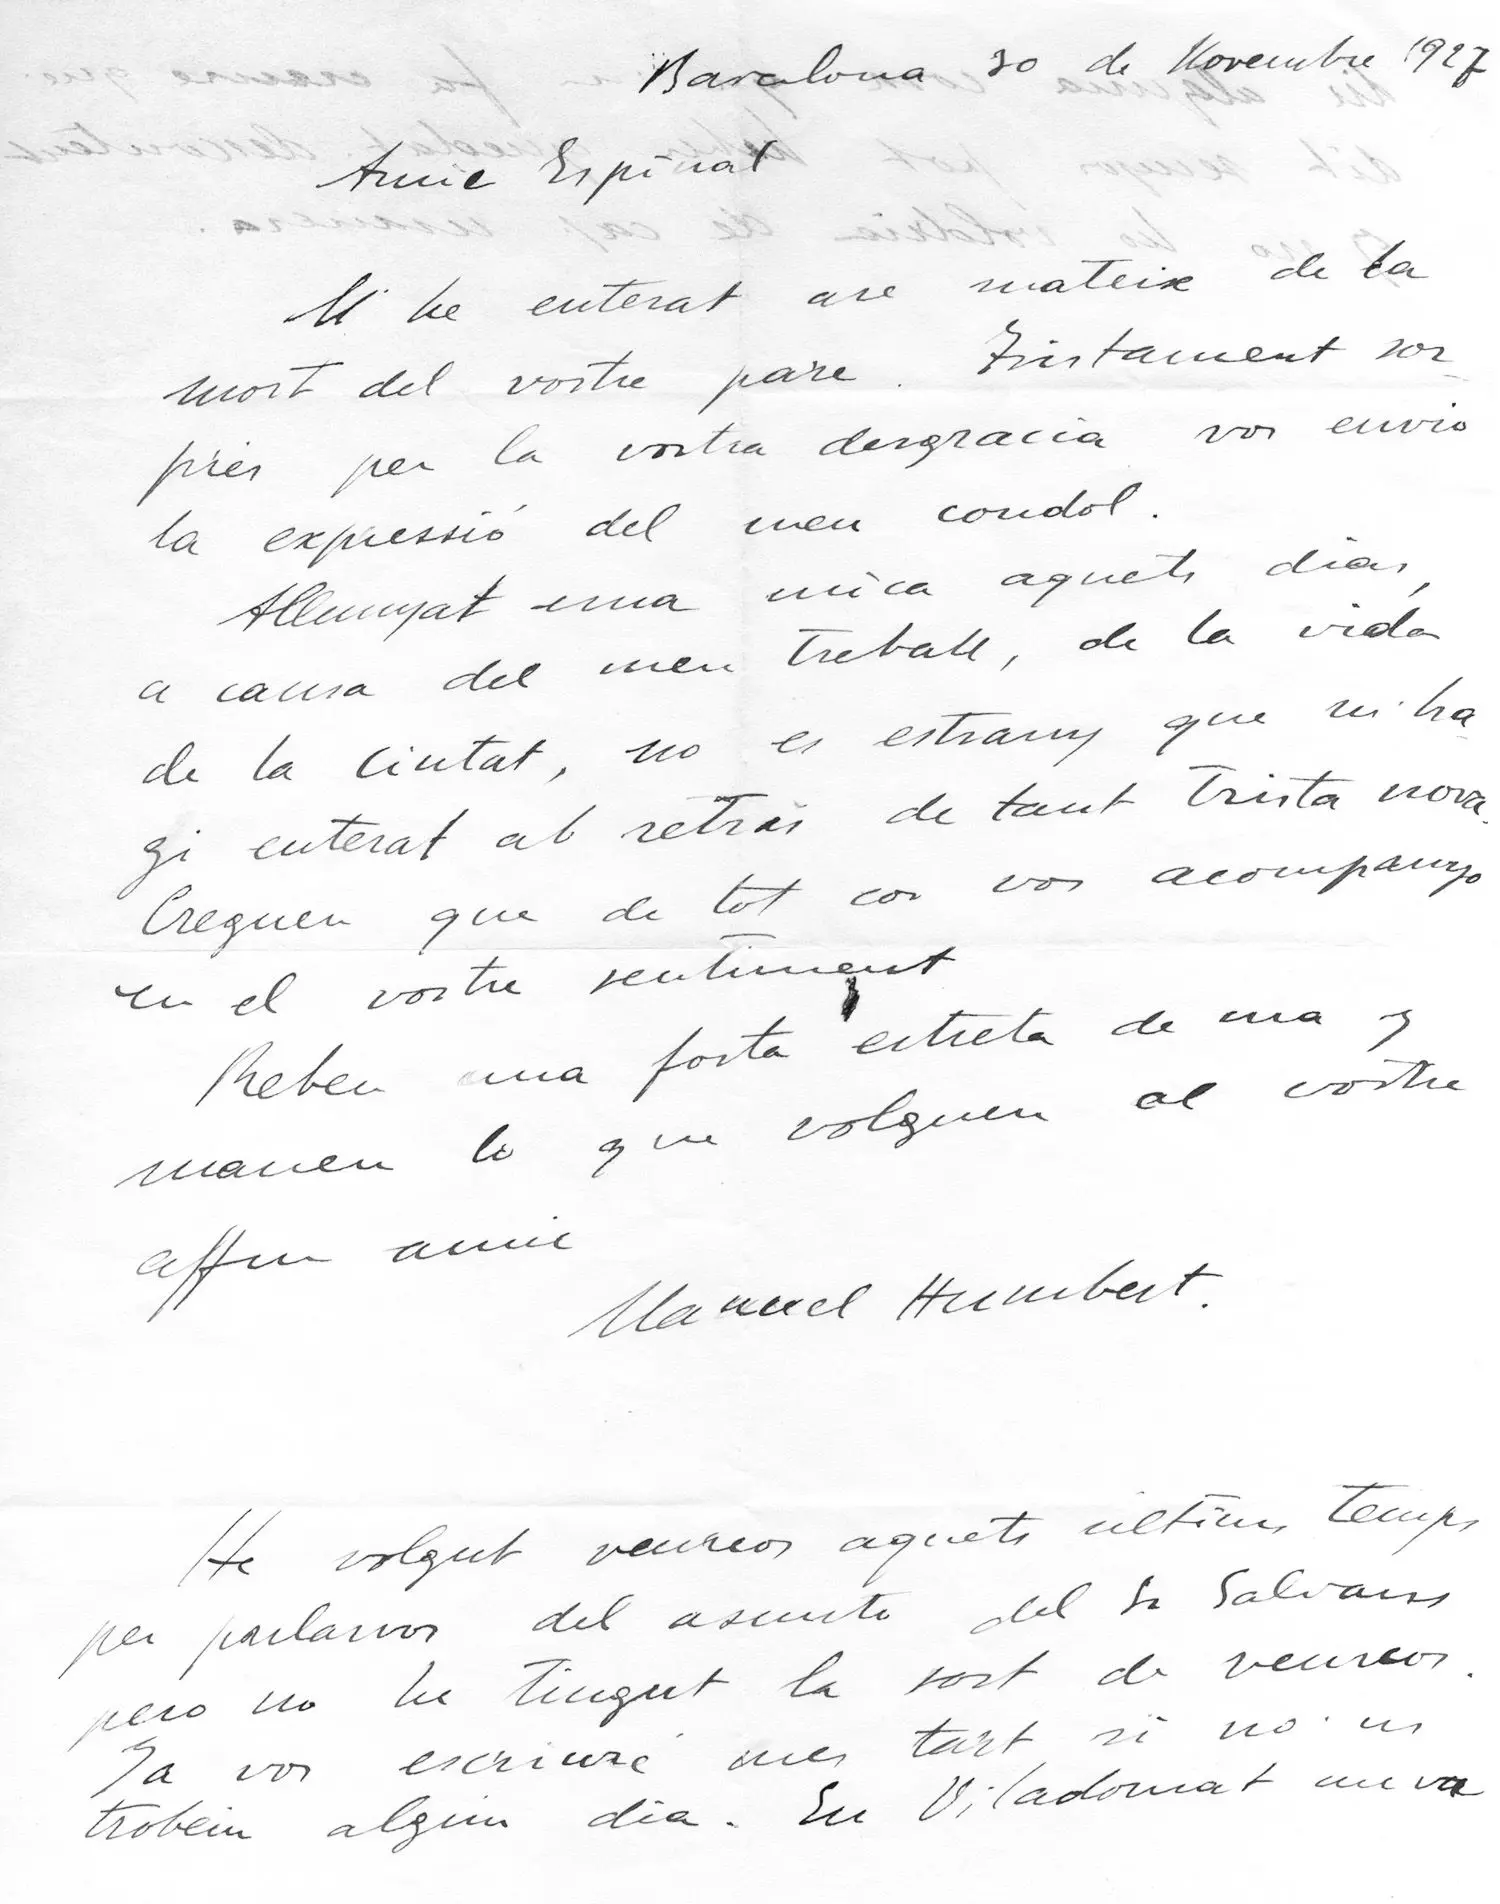 Barcelona 30 de Novembre 1927
Amic Espinal
M he enterat are mateix de la
mort del vostre pare. Tristament sor-
pres per la vostra desgracia vos envio
la expressió del meu condol.
Allunyat una mica aquets dias,
a causa del meu treball, de la vida
de la ciutat, no es estrany que m'ha-
gi enterat ab retràs de tant trista nova.
Cregueu que de tot cor vos acompanyo
en el vostre sentiment
Rebeu una forta estreta de ma y
maneu lo que volgueu al vostre
affm amic
Manuel Humbert.
He volgut veureos aquets ultims temps
per parlarvos del asumto del Sr Salvans
pero no he tingut la sort de veureos.
Ja vos escriuré mes tart si no ns
trobem algun dia. En Viladomat me va